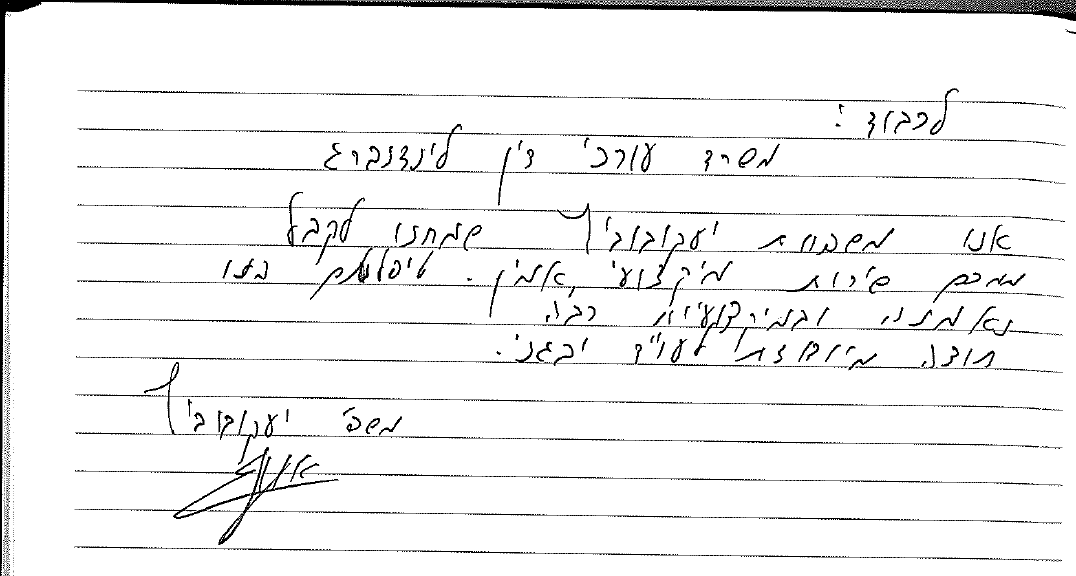 לכבוד:
משרד עורכי דין לינדנברג
אנו משפחת יעקובוביץ שמחנו לקבל
מכם שירות מיקצועי, אמין. טיפלתם בנו
נאמנה ובמיקצועיות רבה
תודה מיוחדת לעו"ד יבגני.
משפ' יעקובוביץ